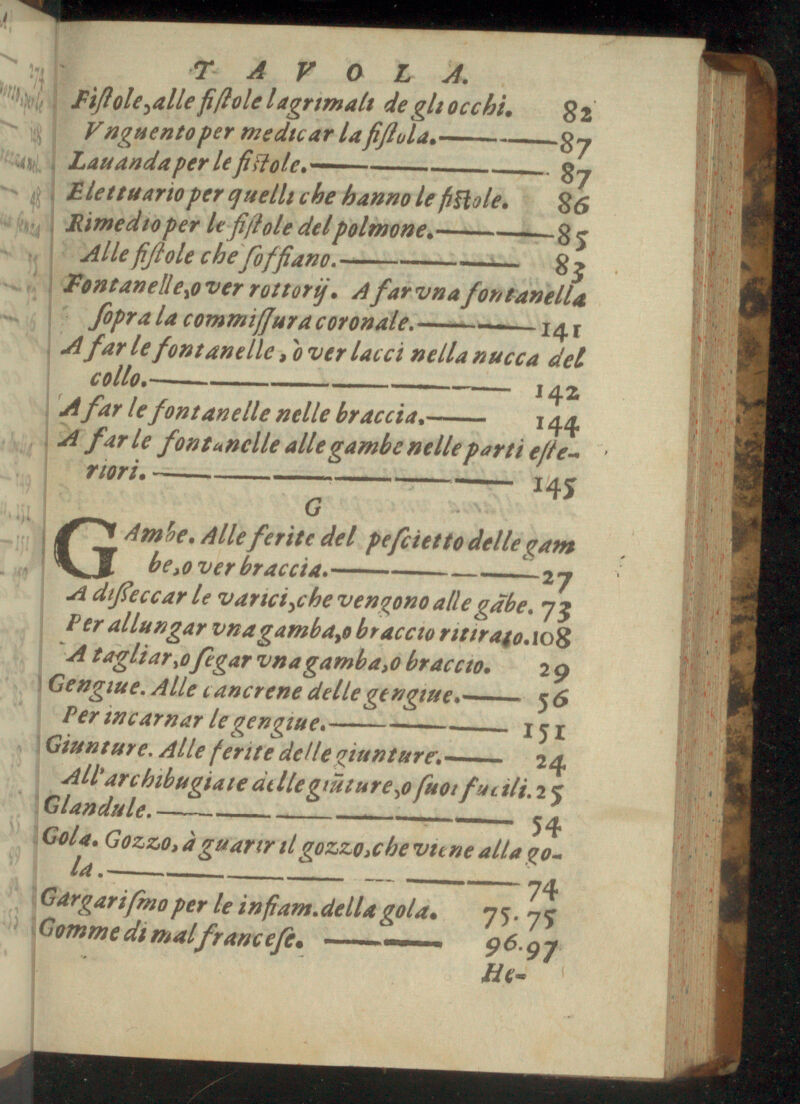 TAVOLA.
Fiſtole, alle fiſtole lagrimali de gli occhi. 82
Vnguento per medicar la fiſtola. 87
Lauanda per le fiſtole. 87
Elettuario per quelli che hanno le fiſtole. 86
Rimedio per le fiſtole del polmone. 85
Alle fiſtole che ſoffiano. 83
Fontanelle, o ver rottorij. A far vna fontanella
ſopra la commiſſura coronale. 141
A far le fontanelle, ò ver lacci nella nucca del
collo. 142
A far le fontanelle nelle braccia. 144
A far le fontanelle alle gambe nelle parti eſte-
riori. 145
G
GAmbe. Alle ferite del peſcietto delle gam
be, o ver braccia. 27
A diſſeccar le varici, che vengono alle gãbe. 73
Per allungar vna gamba, o braccio ritirato. 108
A tagliar, o ſegar vna gamba, o braccio. 29
Gengiue. Alle cancrene delle gengiue. 56
Per incarnar le gengiue. 151
Giunture. Alle ferite delle giunture. 24
All'archibugiate delle giũture, o ſuoi fucili. 25
Glandule. 54
Gola. Gozzo, à guarir il gozzo, che viene alla go-
la. 74
Gargariſmo per le infiam. della gola. 75. 75
Gomme di mal franceſe. 96. 97
He-